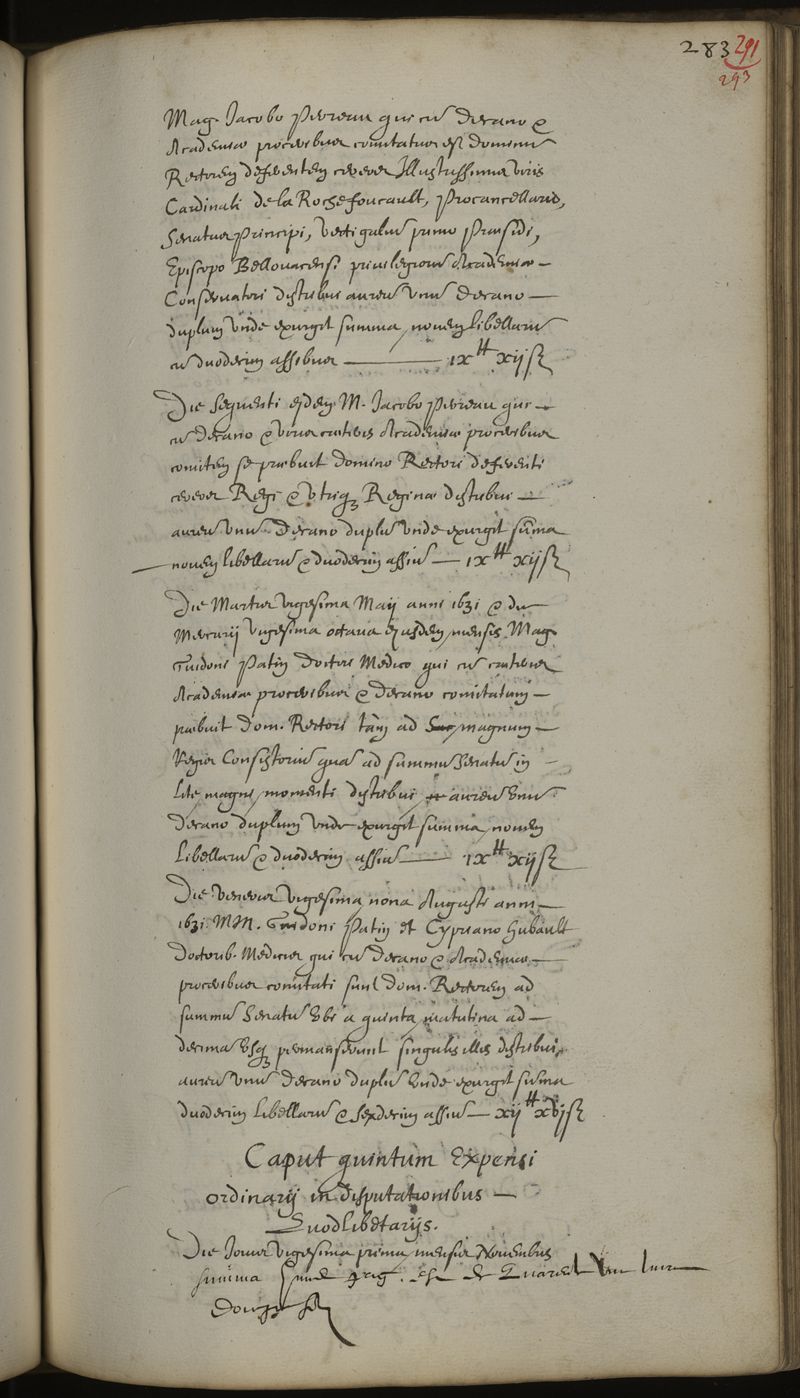 283 291
293
Mag. Jacobo Perreau qui cū decano &
Academiæ proceribus comitatus est dominū
Rectorem deferentem cereos Illustrissimis viris
Cardinali de la Rochefoucault, Procancellario,
Senatus Principi, Vectigaliū primo Præsidi,
Episcopo Bellovacensi privilegiorū Academiæ
Conservatori distribui aureū unū Decano
duplum unde exurgit summa novem libellarū
cū duodecim assibus ixtt xijs
Die sequenti ejdem M. Jacobo Perreau qui
cū Decano & Academiæ proceribus
comitem se præbuit Domino Rectori deferenti
cereos Regi & utriq Reginæ distribui
aureū unū Decano duplū unde exurgit sūma
novem libellarū & duodecim assiū ixtt xijs
Die Martis vigesima Maij anni 1631 & die
Mercurij vigesima octava ejusdem mensis Mag.
Guidoni Patin Doctori Medico qui cū
Academiæ proceribus & Decano comitatum
præbuit Dom. Rectori tam ad magnum
Regis Consistoriū quā ad summū Senatū in
lite magni momenti distribui aureū unū
Decano duplum unde exurgit summa novem
libellarū & duodecim assiū ixtt xijs
Die Veneris vigesima nona Augusti anni
1631 MM. Guidoni Patin et Cypriano Hubault
Doctorib. Medicis qui cū Decano & Academiæ
proceribus comitati sunt Dom. Rectorem ad
summū Senatū ubi a quinta matutina ad
decimā usq permanserunt singulis illis distribui
aureū unū Decano duplū unde exurgit sūma
duodecim libellarū & sexdecim assiū xijtt xvjs
Caput quintum Expensi
ordinarij in disputationibus
Quodlibetarijs.
Die Jovis vigesima prima mensis Novembris
summa